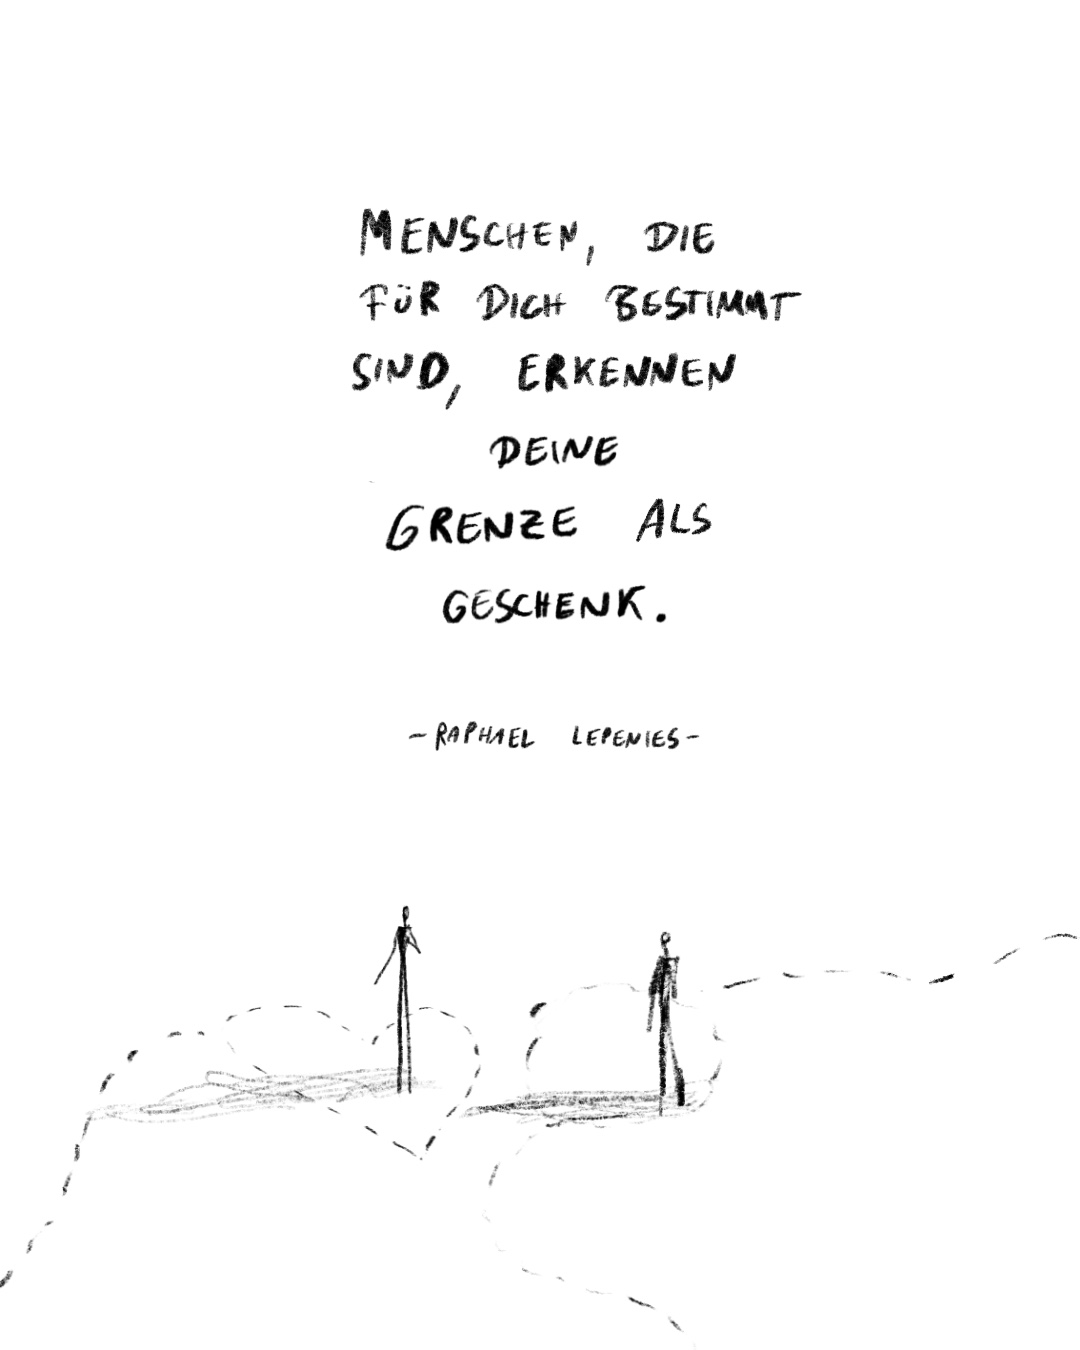 MENSCHEN, DIE
FÜR DICH BESTIMMT
SIND, ERKENNEN
DEINE
GRENZE ALS
GESCHENK.
-RAPHAEL LEPENIES-